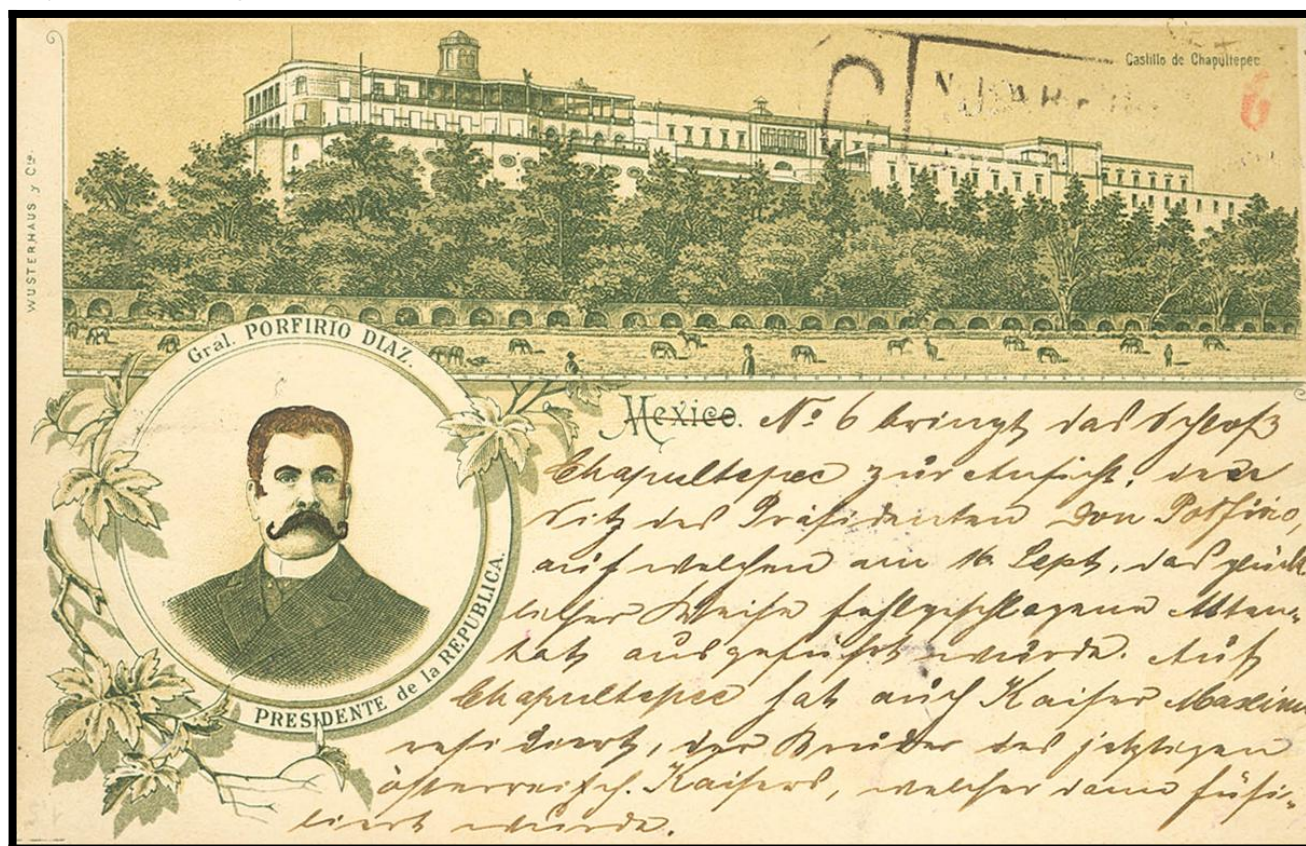 Castillo de Chapultepec
6
WUSTERHAUS y Cie.
Gral. PORFIRIO DIAZ.
PRESIDENTE de la REPUBLICA.
Mexico. No 6 bringt das Schloß
Chapultepec zur Ansicht, den
Sitz des Präsidenten Don Porfirio,
auf welchen am 16 Sept. das glück
licher Weise fehlgeschlagene Atten-
tat ausgeführt wurde. Auf
Chapultepec hat auch Kaiser Maxim
residiert, der Bruder des jetztigen
österreich. Kaisers, welcher dann füsi-
liert wurde.